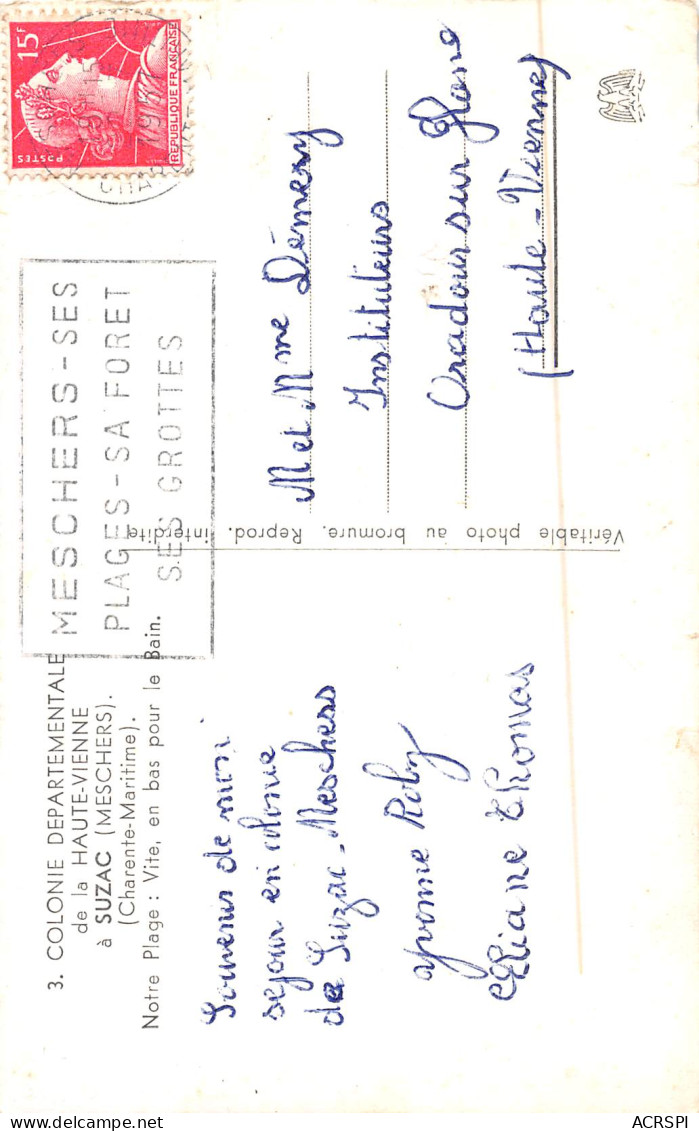 3. COLONIE DEPARTEMENTALE
de la HAUTE-VIENNE
à SUZAC (MESCHERS).
(Charente-Maritime).
Notre Plage : Vite, en bas pour le Bain.
Souvenir de mon
sejour en colonie
de Suzac-Meschers
Yvonne Roby
Eliane Thomas
Véritable photo au bromure. Reprod. interdite
MESCHERS-SES
PLAGES-SA FORET
SES GROTTES
15F
POSTES
REPUBLIQUE FRANÇAISE
M et Mme Démery
Instituteurs
Oradour sur Glane
(Haute-Vienne)
ACRSPI